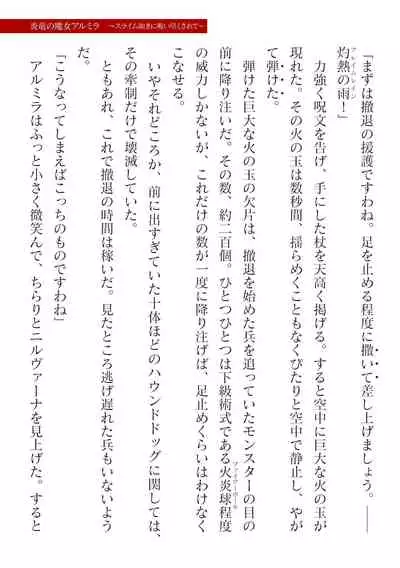 炎竜の魔女アルミラ　～スライム如きに吸い尽くされて～
「まずは撤退の援護ですわね。足を止める程度に撒いて差し上げましょう。――
灼熱の雨！」
フレイムレイン
力強く呪文を告げ、手にした杖を天高く掲げる。すると空中に巨大な火の玉が
現れた。その火の玉は数秒間、揺らめくこともなくぴたりと空中で静止し、やが
て弾けた。
弾けた巨大な火の玉の欠片は、撤退を始めた兵を追っていたモンスターの目の
前に降り注いだ。その数、約二百個。ひとつひとつは下級術式である火炎球程度
ファイヤーボール
の威力しかないが、これだけの数が一度に降り注げば、足止めくらいはわけなく
こなせる。
いやそれどころか、前に出すぎていた十体ほどのハウンドドッグに関しては、
その牽制だけで壊滅していた。
ともあれ、これで撤退の時間は稼いだ。見たところ逃げ遅れた兵もいないよう
だ。
「こうなってしまえばこっちのものですわね」
アルミラはふっと小さく微笑んで、ちらりとニルヴァーナを見上げた。すると